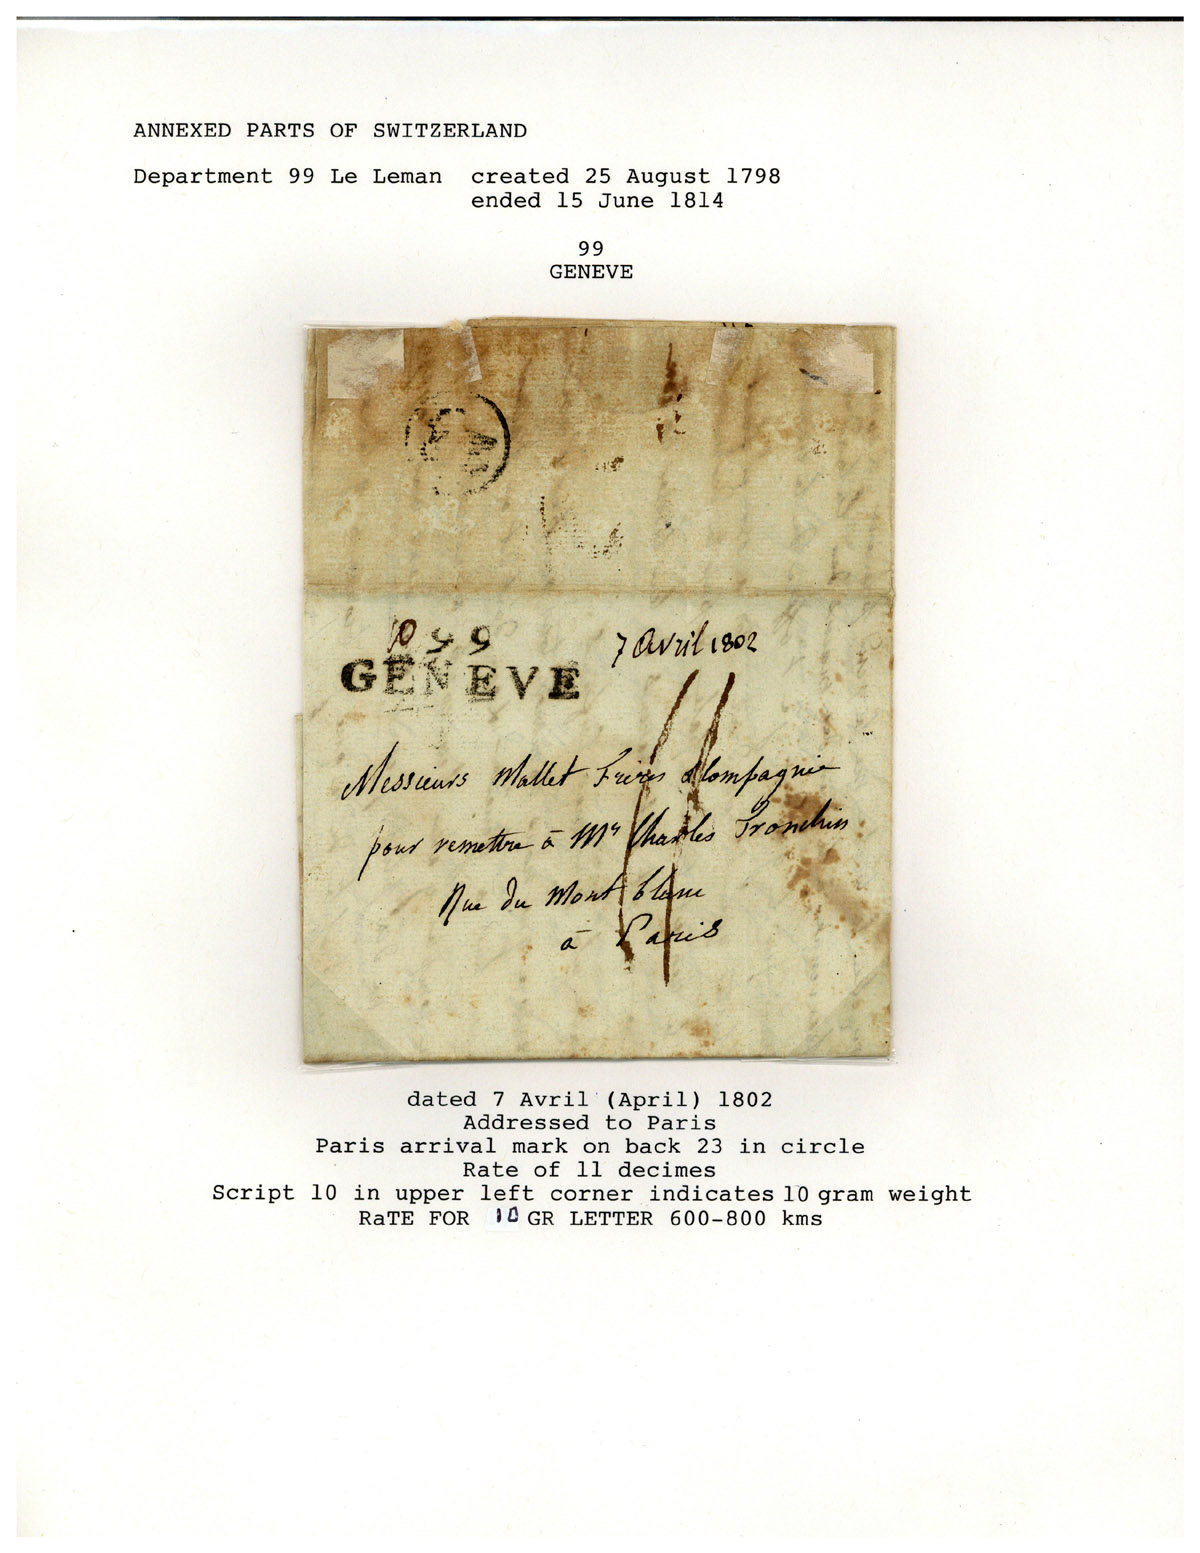 ANNEXED PARTS OF SWITZERLAND
Department 99 Le Leman created 25 August 1798
ended 15 June 1814
99
GENEVE
10 99
7 avril 1802
GENEVE
11
Messieurs Mallet Frères & Compagnie
pour remettre à Mr Charles Tronchin
Rue du Mont blanc
à Paris
dated 7 Avril (April) 1802
Addressed to Paris
Paris arrival mark on back 23 in circle
Rate of 11 decimes
Script 10 in upper left corner indicates 10 gram weight
RaTE FOR 10 GR LETTER 600-800 kms